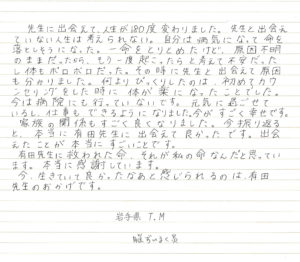 先生に出会えて、人生が180度変わりました。先生と出会え
ていない人生は考えられない。自分は病気になって命を
落としそうになった。一命をとりとめたけど、原因不明
のままだったから、もう一度起こったらと考えて不安だった
し体もボロボロだった。その時に先生と出会えて原因
も分かりました。何よりびっくりしたのは、初めてカウ
ンセリングをした時に体が楽になったことでした。
今は病院にも行っていないです。元気に過ごせて
いるし、仕事もできるようになりました。今がすごく幸せです。
家族の関係もすごく良くなりました。今振り返る
と、本当に有田先生に出会えて良かったです。出会
えたことが本当にすごいことです。
有田先生に救われた命、それが私の命なんだと思ってい
ます。本当に感謝しています。
今、生きていて良かったなあと感じられるのは、有田
先生のおかげです。
岩手県 T.M